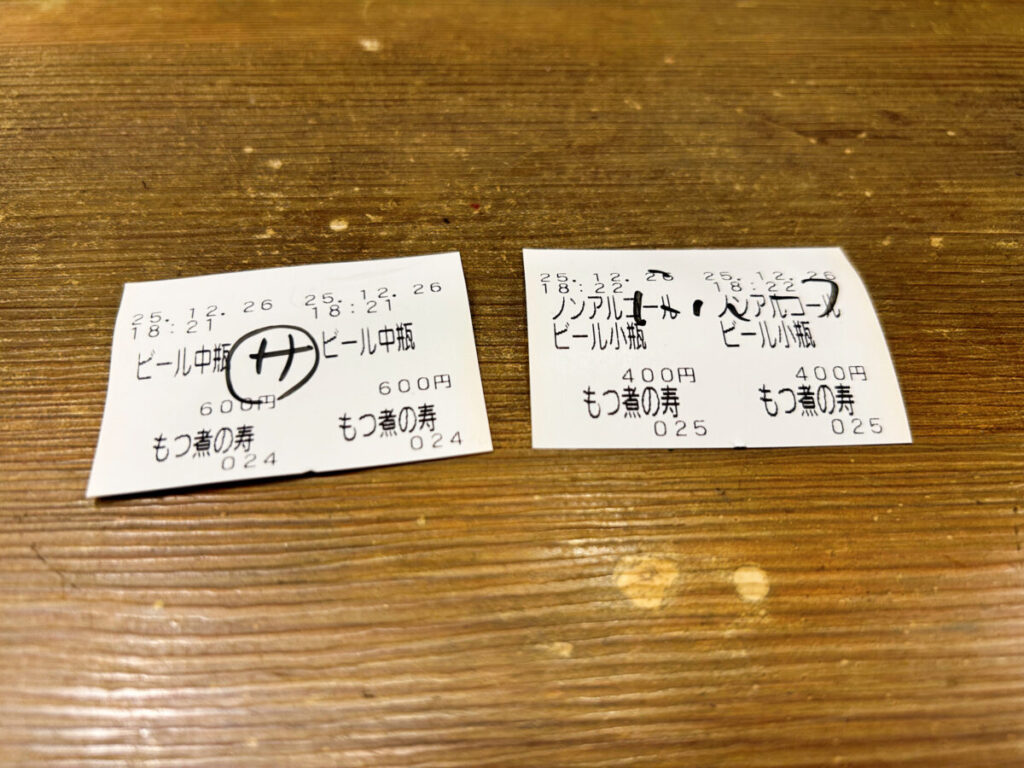 25.12.26 25.12.26
18:21 18:21
ビール中瓶 サ ビール中瓶
600円 600円
もつ煮の寿 もつ煮の寿
024 024
25.12.26 25.12.26
18:22 18:22
ノンアルコール ノンアルコール
ビール小瓶 ビール小瓶
400円 400円
もつ煮の寿 もつ煮の寿
025 025